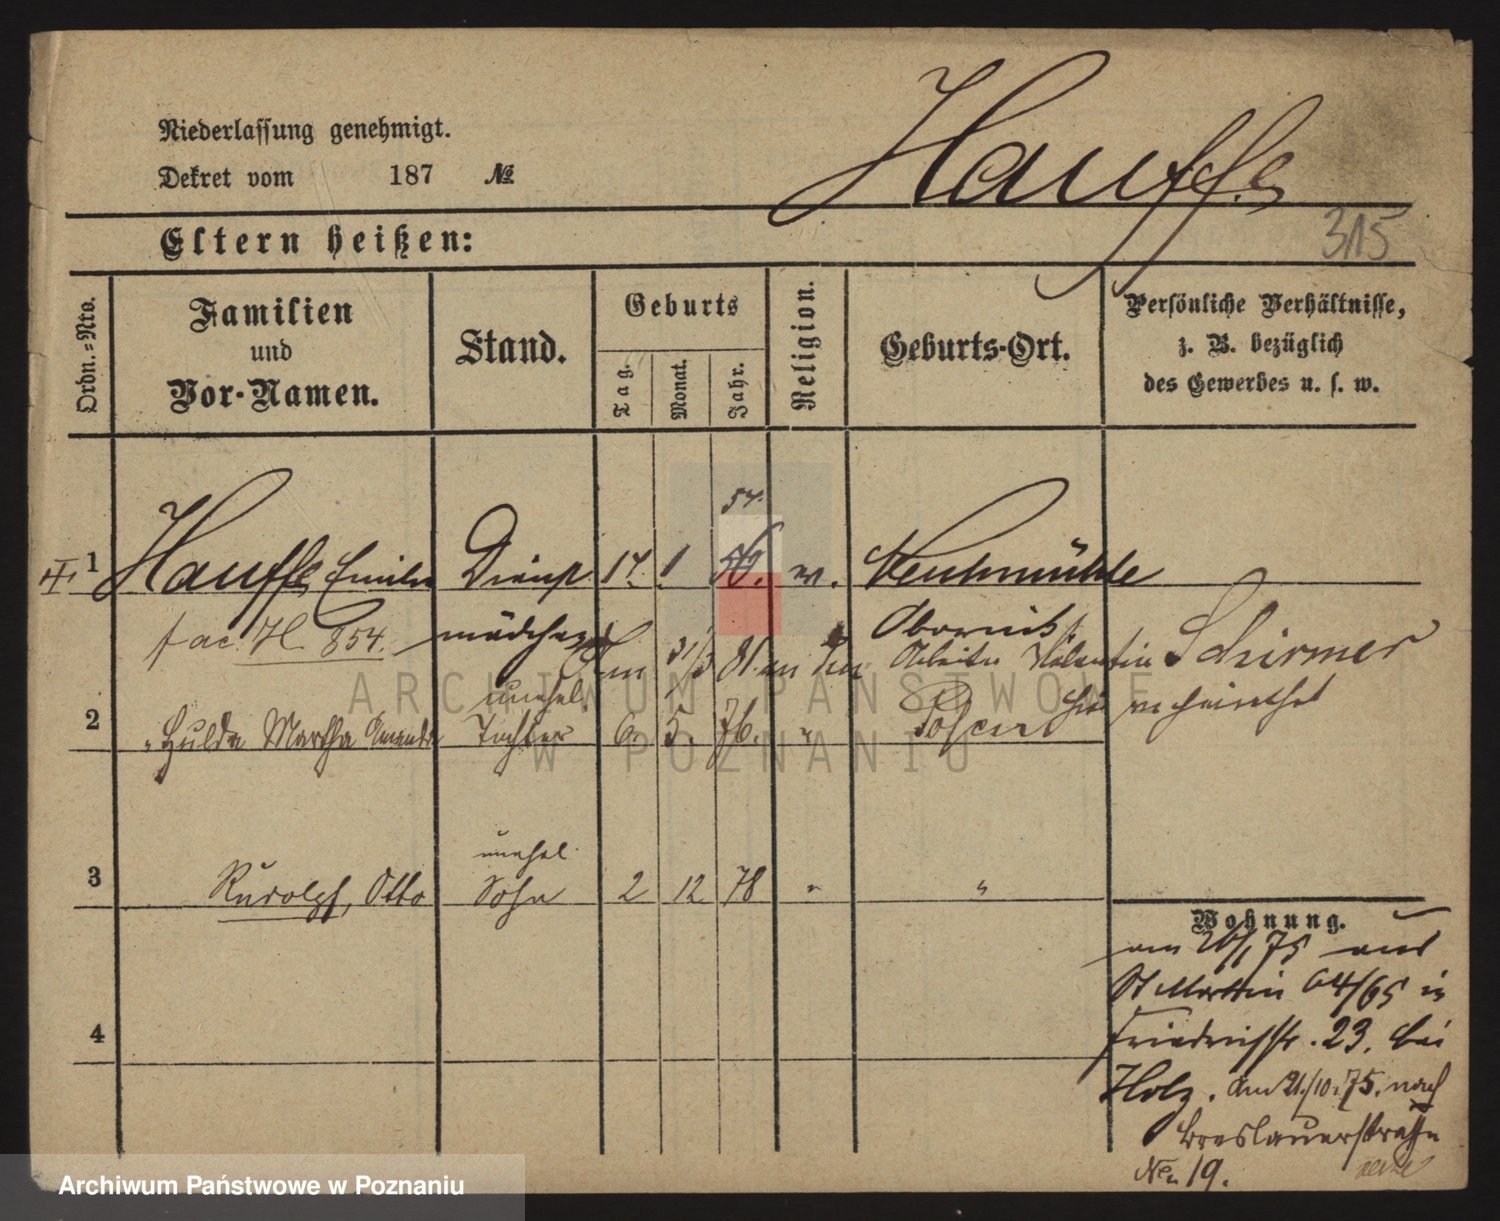 Hauffe
Niederlassung genehmigt.
Dekret vom 187 №
315
Eltern heißen:
Ordn.=Nro.
Familien
und
Vor-Namen.
Stand.
Geburts
Tag.
Monat.
Jahr.
Religion.
Geburts-Ort.
Persönliche Verhältnisse,
z. B. bezüglich
des Gewerbes u. s. w.
54.
1 Hauffe Emilie Dienst 17. 1 Neuhmühle
mädchen Obornik
Am 31/3 81 an den Arbeiter Valentin Schirmer
hier verheirathet
unehel.
2 " Hulda Martha Amanda Tochter 6. 5 76. " Posen
unehel.
3 Rudolph, Otto Sohn 2 12 78 " "
4
Wohnung.
am 26/1 75 aus
St Martin 64/65 in
Friedrichstr. 23. bei
Holz. Am 21/10. 75. nach
Breslauerstraße
No 19.
ARCHIWUM PAŃSTWOWE
W POZNANIU
Archiwum Państwowe w Poznaniu